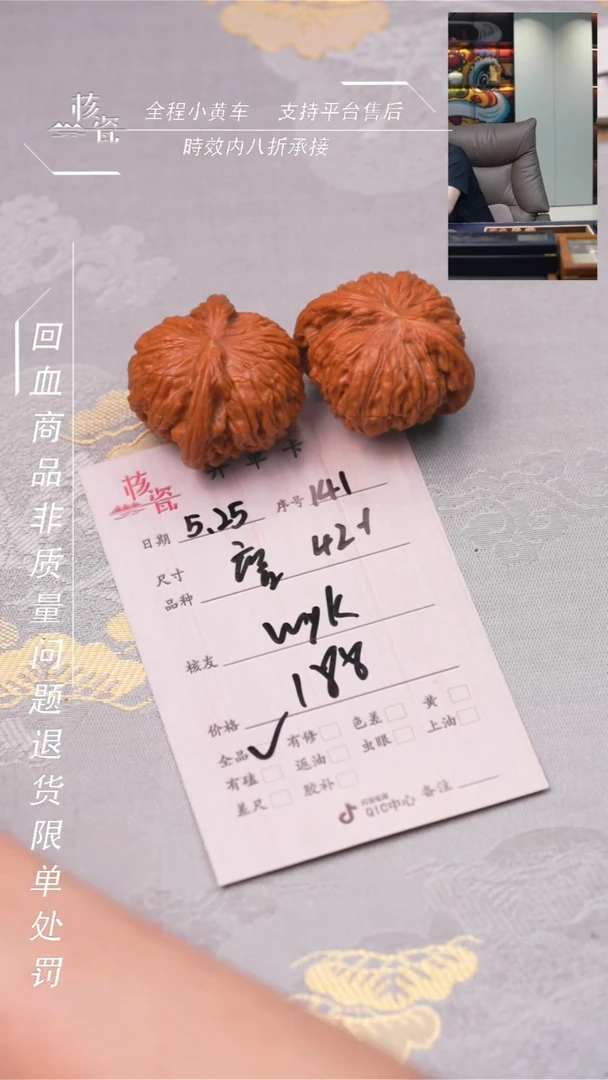 核瓷
全程小黄车 支持平台售后
時效内八折承接
回血商品非质量问题退货限单处罚
核瓷
开单卡
日期 5.25 序号 141
尺寸 421
品种
核友 wyk
价格 188
全品 ✓ 有修 色差 黄
有磕 返油 虫眼 上油
差尺 胶补
QIC中心 备注